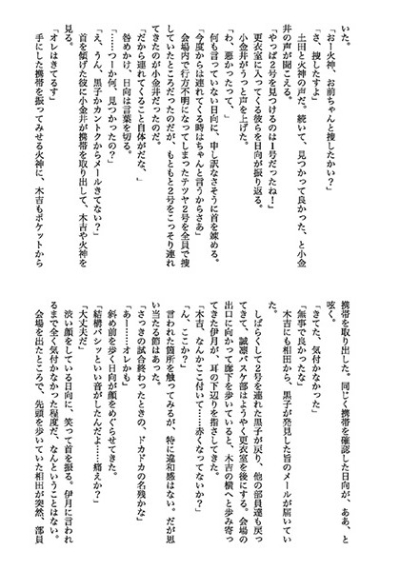 いた。
「おー火神、お前ちゃんと捜したかい？」
「さ、捜したすよ」
土田と火神の声だ。続いて、見つかって良かった、と小金
井の声が聞こえる。
「やっぱ２号を見つけるのは１号だったね！」
更衣室に入ってくる彼らを日向が振り返る。
小金井がうっと声を上げた。
「わ、悪かったって、」
何も言っていない日向に、申し訳なさそうに首を竦める。
「今度からは連れてくる時はちゃんと言うからさあ」
会場内で行方不明になってしまったテツヤ２号を全員で捜
していたところだったのだが、もともと２号をこっそり連れ
てきたのは小金井だったのだ。
「だから連れてくること自体がだな、」
咎めかけ、日向は言葉を切る。
「……つーか何、見つかったの？」
「え、うん、黒子かカントクからメールきてない？」
首を傾げた彼に小金井が携帯を取り出して、木吉や火神を
見る。
「オレはきてるす」
手にした携帯を振ってみせる火神に、木吉もポケットから
携帯を取り出した。同じく携帯を確認した日向が、ああ、と
呟く。
「きてた、気付かなかった」
「無事で良かったな」
木吉にも相田から、黒子が発見した旨のメールが届いてい
た。
しばらくして２号を連れた黒子が戻り、他の部員達も戻っ
てきて、誠凛バスケ部はようやく更衣室を後にする。会場の
出口に向かって廊下を歩いていると、木吉の横へと歩み寄っ
てきた伊月が、耳の下辺りを指さしてきた。
「木吉、なんかここ付いて……赤くなってないか？」
「ん、ここか？」
言われた箇所を触ってみるが、特に違和感はない。だが思
い当たる節はあった。
「さっきの試合終わったときの、ドカドカの名残かな」
「あー……オレかも」
斜め前を歩く日向が顔をめぐらせてきた。
「結構バシッといい音がしたんだよ……痛えか？」
「大丈夫だ」
渋い顔をしている日向に、笑って首を振る。伊月に言われ
るまで全く気付かなかった程度だ、なんということはない。
会場を出たところで、先頭を歩いていた相田が突然、部員